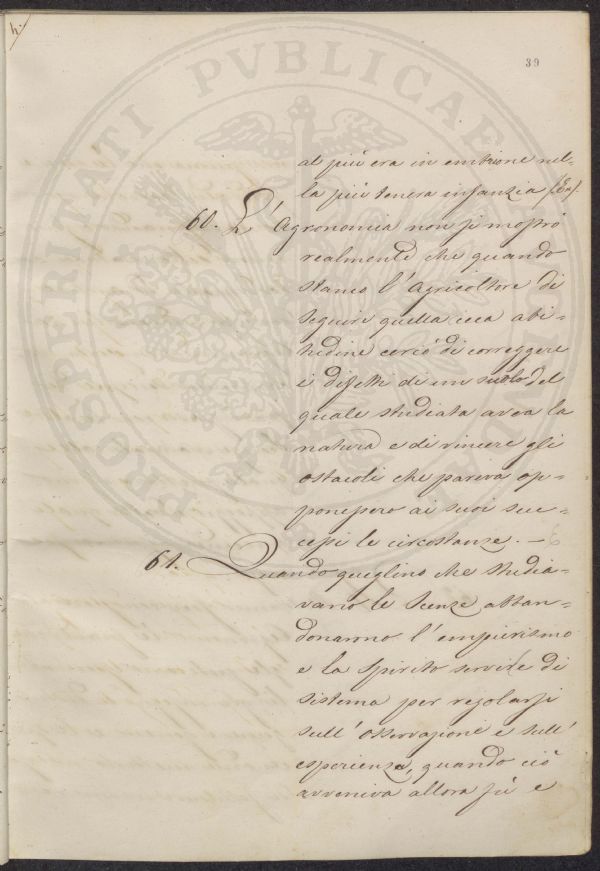 4.
39
PROSPERITATI PVBLICAE
al più era in embrione nel-
la più tenera infanzia
60. L'Agronomia non si mostrò
realmente che quando
stanco l'Agricoltore di
seguire quella ceca abi-
tudine cercò di correggere
i difetti di un suolo del
quale studiata avea la
natura e di vincere gli
ostacoli che pareva op-
ponessero ai suoi suc-
cessi le circostanze. —
61. Quando queglino che studia-
vano le Scenze abban-
donarono l'empierismo
e lo spirito servile di
sistema per regolarsi
sull'osservazione e sull'
esperienza, quando ciò
avveniva allora fù e